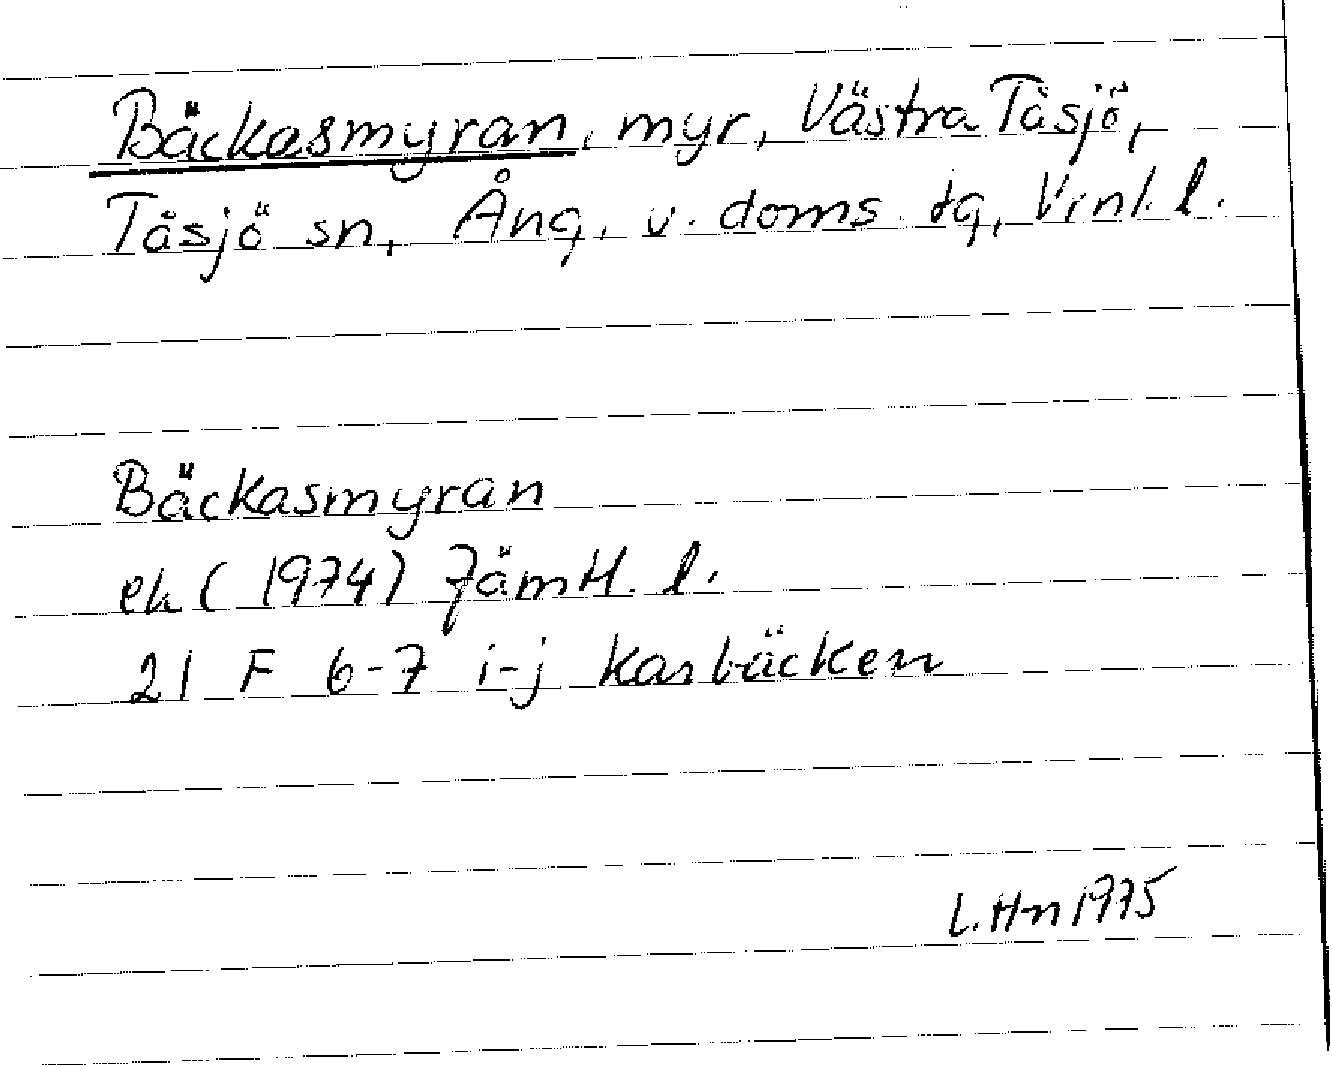 Bäckasmyran, myr, Västra Tåsjö,
Tåsjö sn, Ång. v. doms. tg, Vrnl. l.
Bäckasmyran
ek (1974) Jämtl. l.
21 F 6-7 i-j Karbäcken
L. Hn 1975